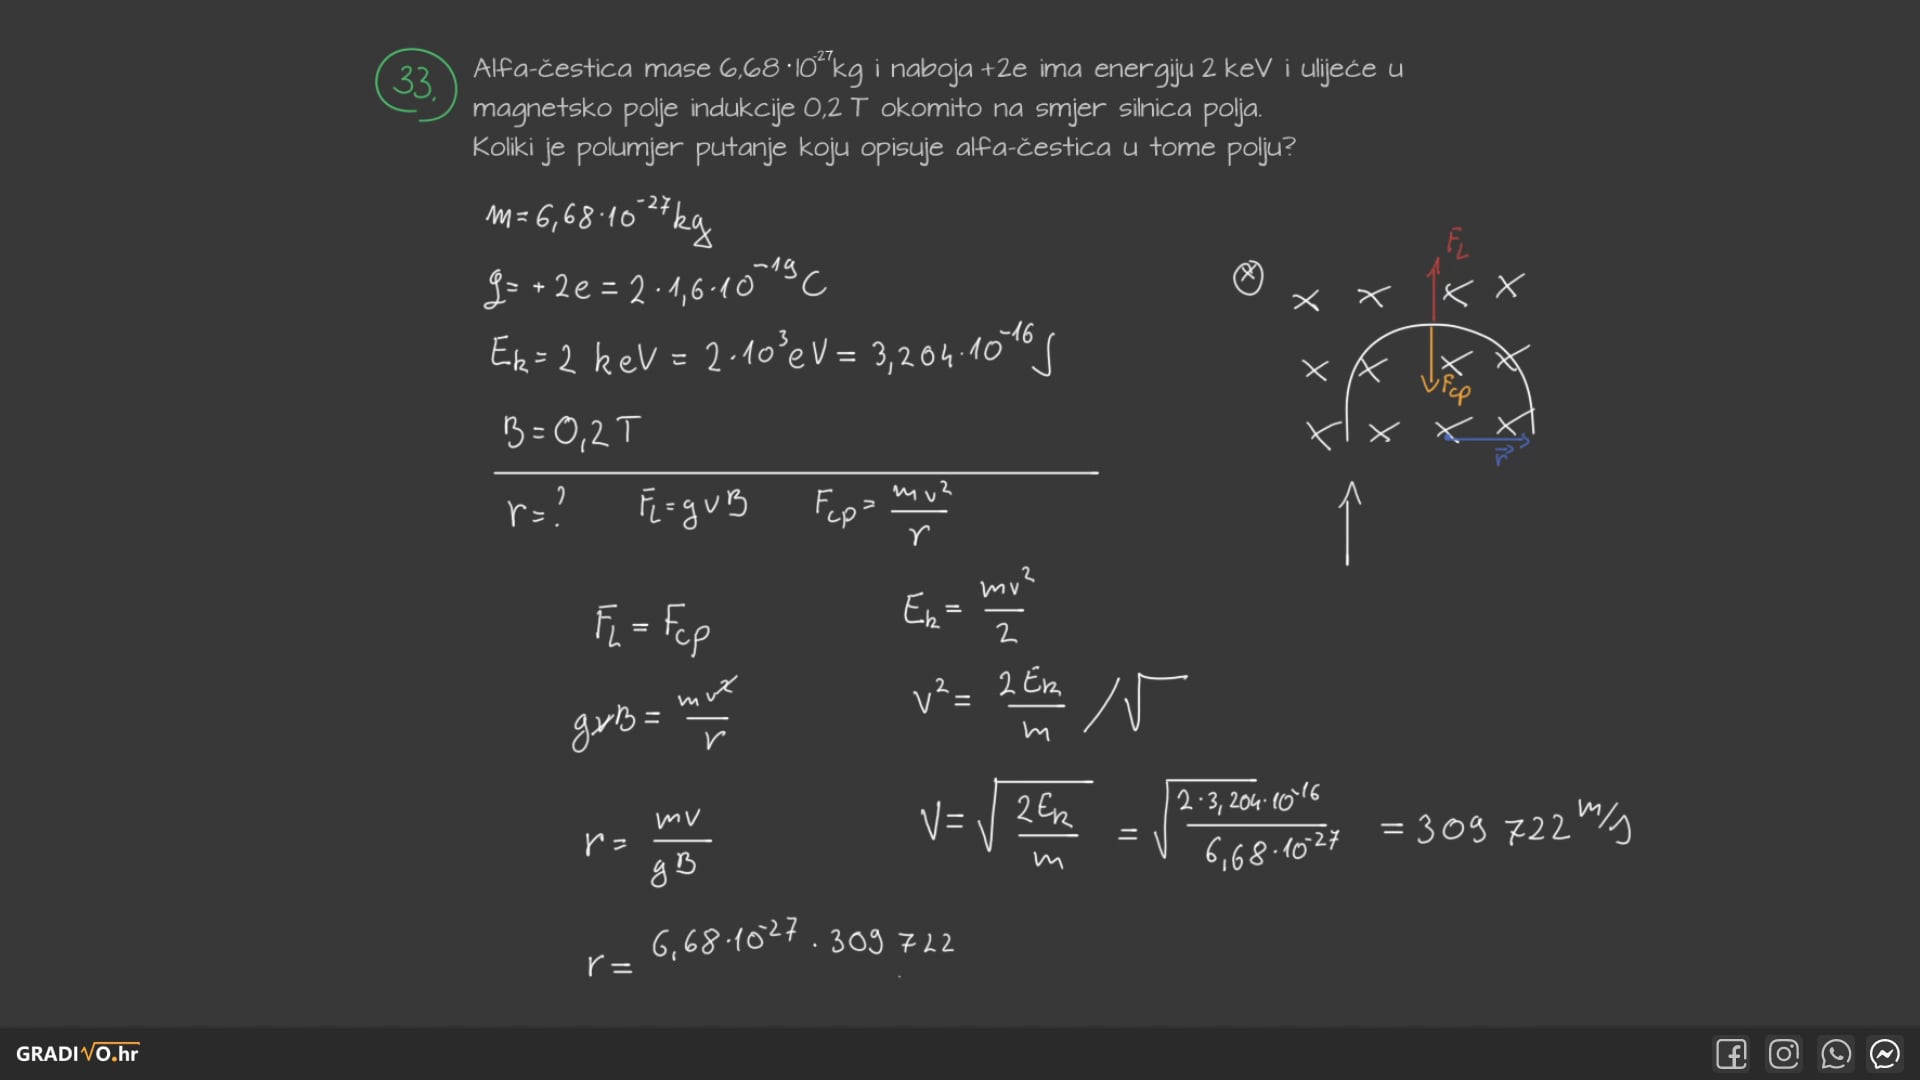 33. Alfa-čestica mase 6,68·10⁻²⁷kg i naboja +2e ima energiju 2 keV i ulijeće u
magnetsko polje indukcije 0,2 T okomito na smjer silnica polja.
Koliki je polumjer putanje koju opisuje alfa-čestica u tome polju?
m = 6,68·10⁻²⁷ kg
q = + 2e = 2·1,6·10⁻¹⁹ C
E_k = 2 keV = 2·10³ eV = 3,204·10⁻¹⁶ J
B = 0,2 T
r = ? F_L = qvB F_cp = mv²/r
F_L = F_cp
qvB = mv²/r
r = mv/qB
r = 6,68·10⁻²⁷ · 309 722
E_k = mv²/2
v² = 2E_k/m /√
v = √(2E_k/m) = √(2·3,204·10⁻¹⁶/6,68·10⁻²⁷) = 309 722 m/s
F_L
⊗ × × × ×
× × × ×
F_cp
× × × ×
r⃗
GRADIVO.hr